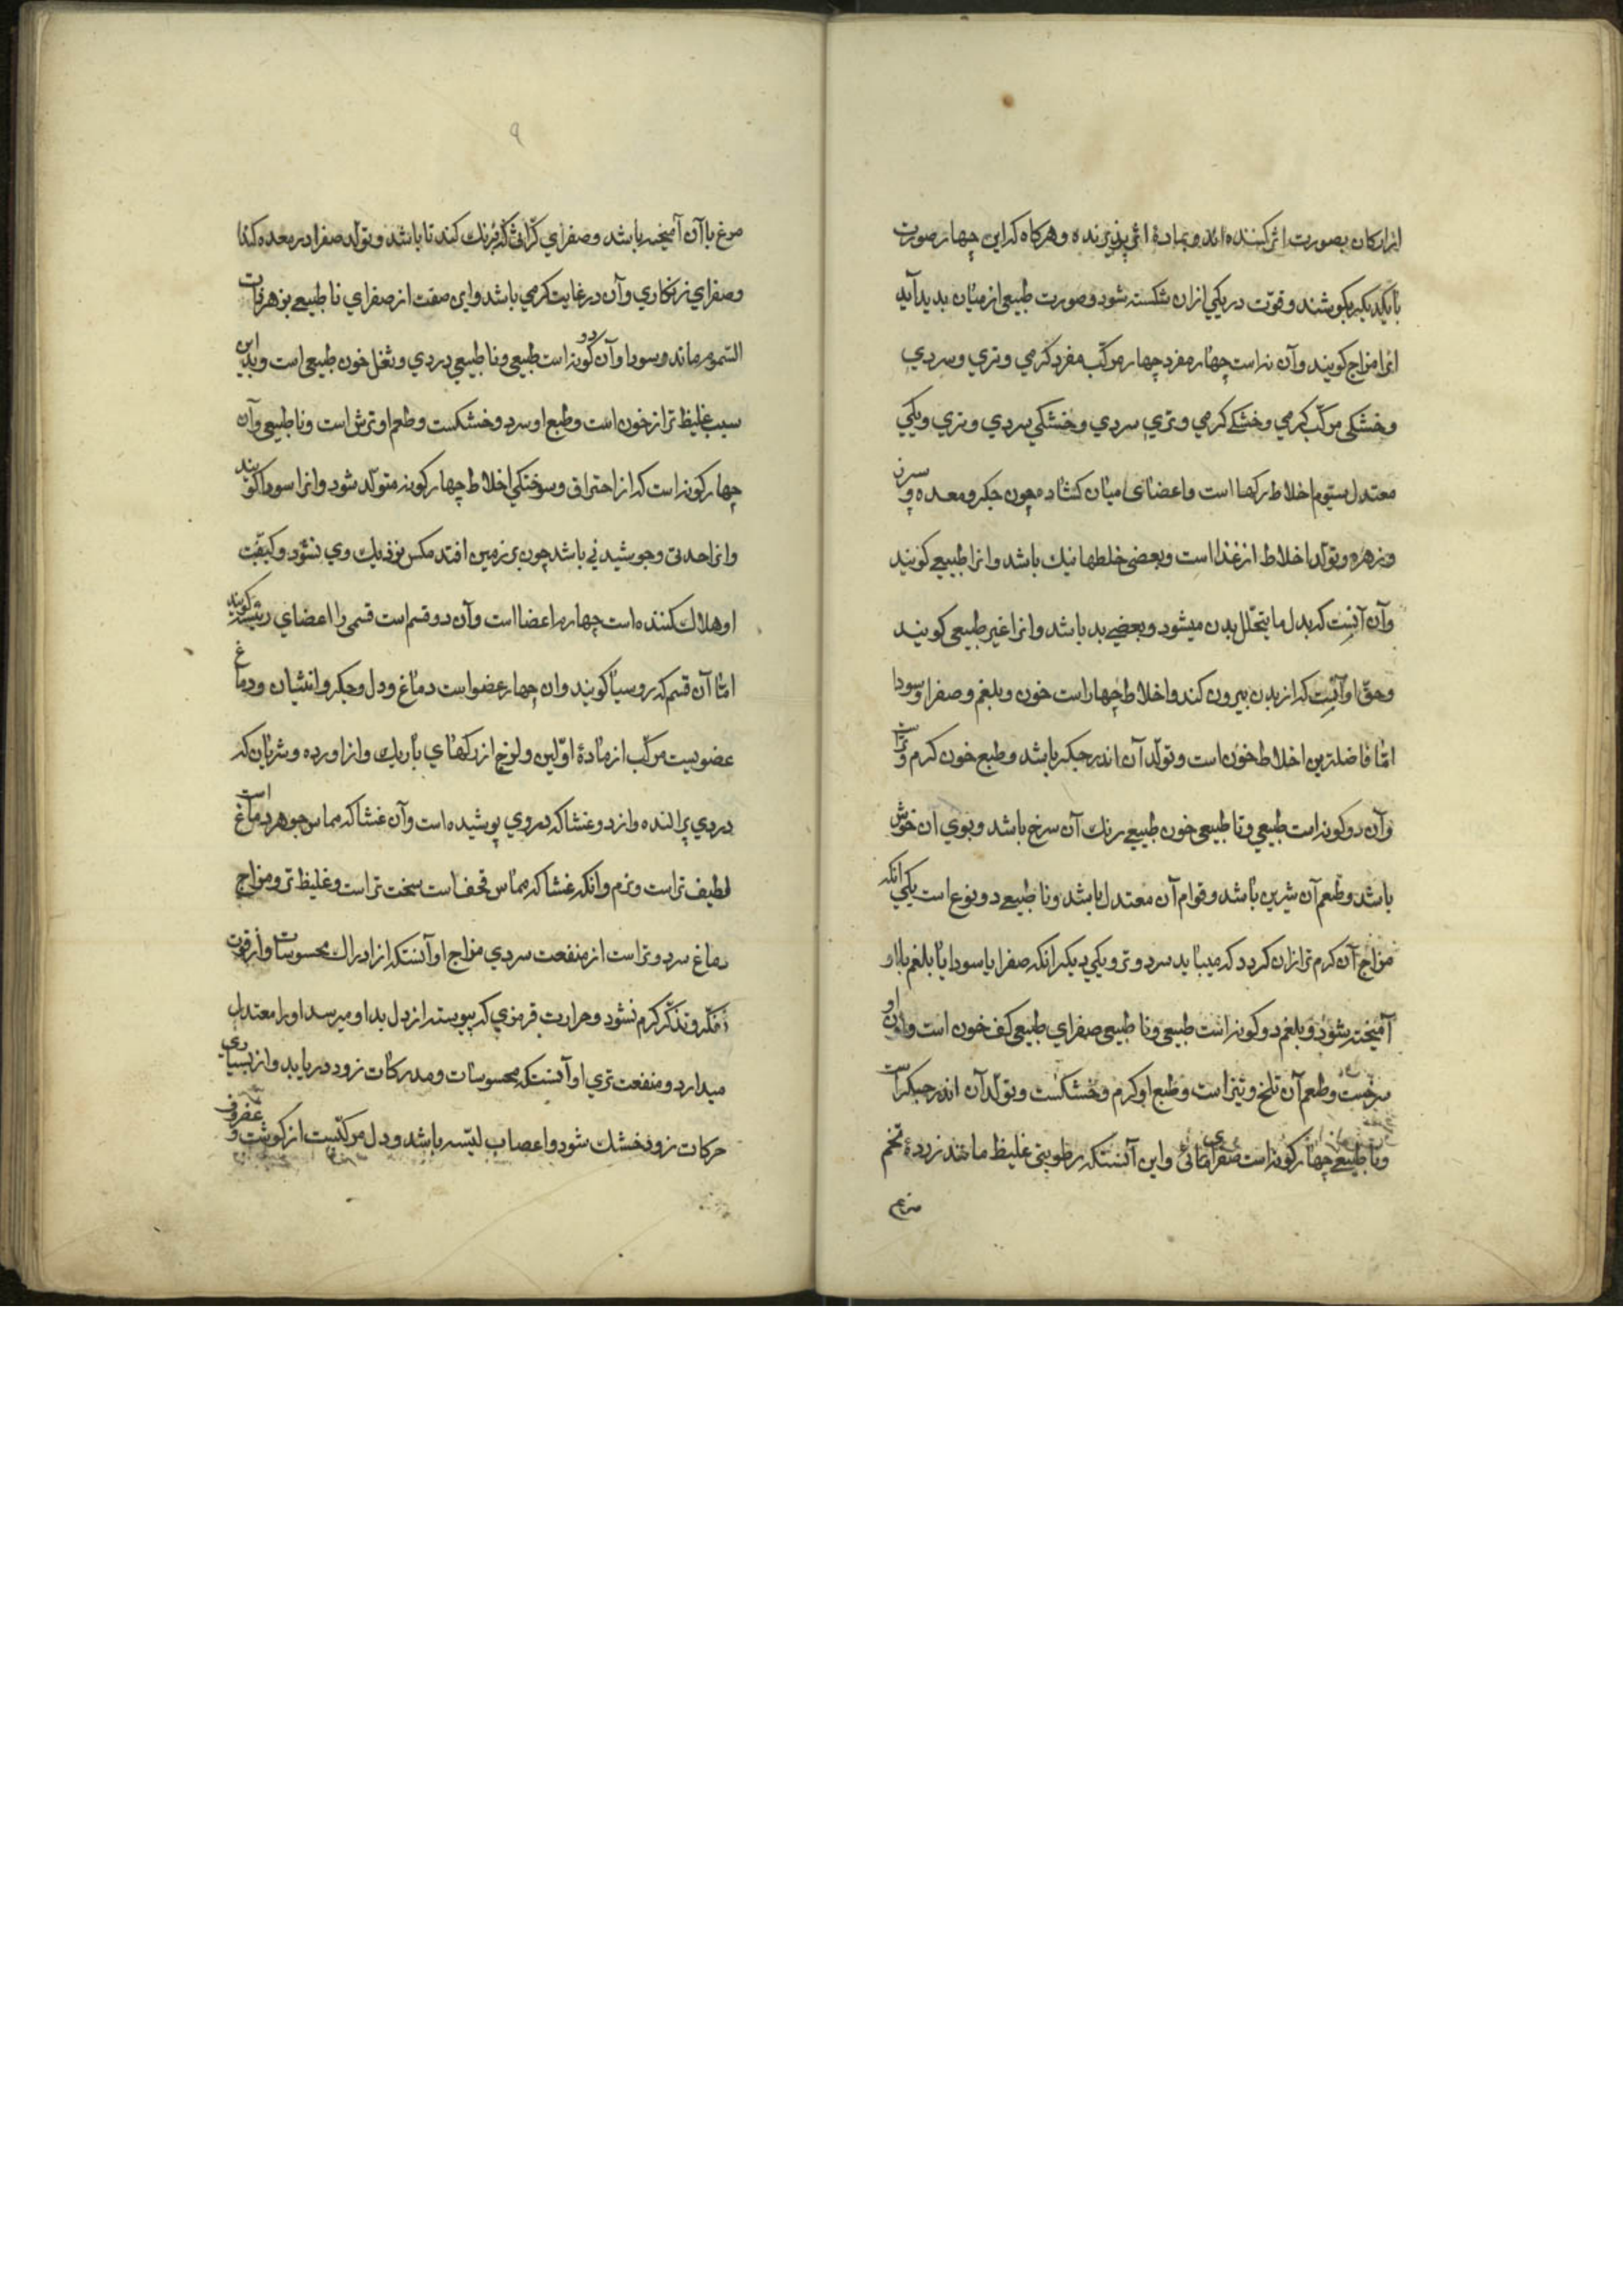 از ارکان بصورت اثر کننده اند و بمادهٔ اثر پذیرنده و هرکاه که این چهار صورت
با یکدیکر بکوشند و قوّت در یکی ازان شکسته شود و صورت طبیعی از میان بدید آید
انرا مزاج کویند و آن نه است چهار مفرد چهار مرکّب مفرد کرمی و تری و سردی
و خشکی مرکّب کرمی و خشکے کرمی و تری سردی و خشکی سردی و تری و یکی
معتدل سیّوم اخلاط رکها است و اعضای میان کشاده چون جکر و معده و سپرز
و زهره و تولّد اخلاط از غذا است و بعضی خلطها نیك باشد و انرا طبیعے کویند
وآن آنست که بدل ما یتحلّل بدن میشود و بعضے بد باشد و انرا غیر طبیعی کویند
و حقّ او آنست که از بدن بیرون کند و اخلاط چهار است خون و بلغم و صفرا و سودا
امّا فاضلترین اخلاط خون است و تولّد آن اندر جیکر باشد و طبع خون کرم و تراست
وآن دو کونه است طبیعی و نا طبیعی خون طبیعے رنك آن سرخ باشد و بوی آن خوش
باشد و طعم آن شیرین باشد و قوام آن معتدل باشد و نا طبیعے دو نوع است یکی انکه
مزاج آن کرم تر ازان کردد که میباید سرد و تر و یکی دیکر انکه صفرا یا سودا یا بلغم با او
آمیخته شود و بلغم دو کونه است طبیعی و نا طبیعی صفرای طبیعی کف خون است و لون او
سرخست و طعم آن تلخ و تیز است و طبع او کرم و خشکست و تولّد آن اندر جیکر است
و نا طبیعے چهار کونه است صفرای مائی و این آنستکه رطوبتی غلیظ مانند زردهٔ تخم
مرغ
٩
مرغ با آن آمیخته باشد و صفرای کرّاثی که برنك کندنا باشد و تولّد صفرا در معده کند
و صفرای زنکاری و آن در غایت کرمی باشد و این صفت از صفرای نا طبیعے بزهر ذات
السّموم ماند و سودا و آن دو کونه است طبیعی و نا طبیعی دردی و ثفل خون طبیعی است و بدین
سبب غلیظ تر از خون است و طبع او سرد و خشکست و طعم او ترش است و نا طبیعی وآن
چهار کونه است که از احتراق و سوختکی اخلاط چهار کونه متولّد شود و انرا سودا کویند
و انرا حدتی و جوشیدنی باشد چون بر زمین افتد مکس نزدیك وی نشود و کیفیّت
او هلاك کننده است چهارم اعضا است وآن دو قسم است قسمی را اعضای رئیسه کویند
امّا آن قسم که روسیا کویند وان چهار عضو است دماغ و دل و جیکر و انثیان و دماغ
عضویست مرکّب از مادهٔ اوّلین و لزج از رکهای باریك و از اورده و شریان که
دروی پراکنده و از دو غشا که بروی پوشیده است وآن غشا که مماس جوهر دماغ است
لطیف تر است و نرم وانکه غشا که مماس قحف است سخت تر است و غلیظ تر و مزاج
دماغ سرد و تر است از منفعت سردی مزاج او آنستکه از ادراك محسوسات و از قوت
تفکّر و تذکّر کرم نشود و حرارت قرمزی که پیوسته از دل بداو میرسد او را معتدل
میدارد و منفعت تری او آنستکه محسوسات و مدرکات زود دریابد و از بسیاری
حرکات زود خشك نشود و اعصاب لیّنه باشد و دل مرکّبست از کوشت و غضروف